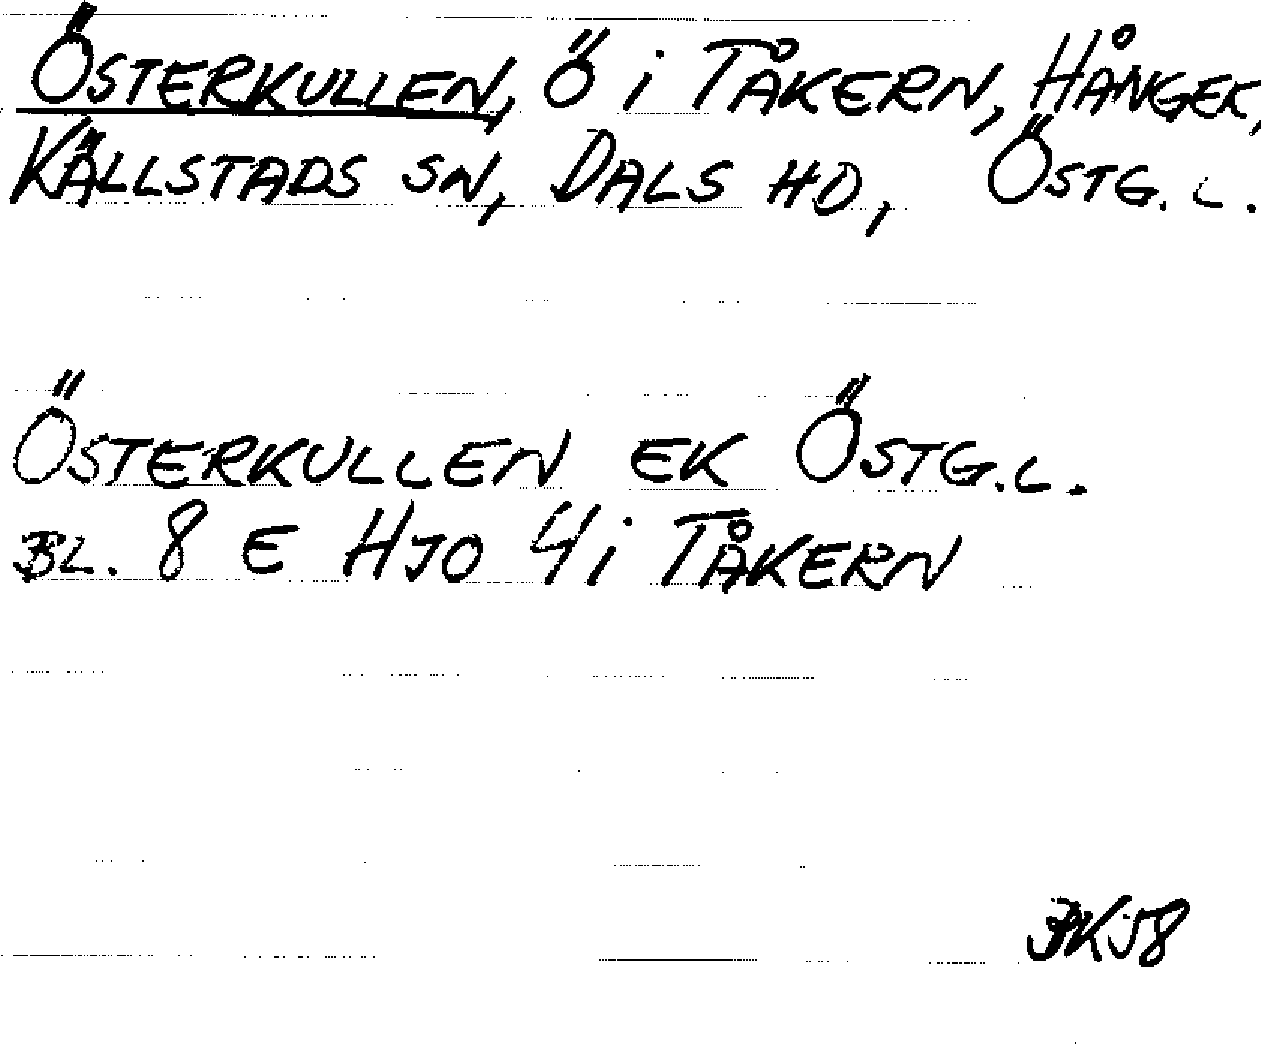 ÖSTERKULLEN, Ö i TÅKERN, HÅNGER,
KÄLLSTADS SN, DALS HD, ÖSTG. L.
ÖSTERKULLEN EK ÖSTG. L.
BL. 8 E HJO 4 i TÅKERN